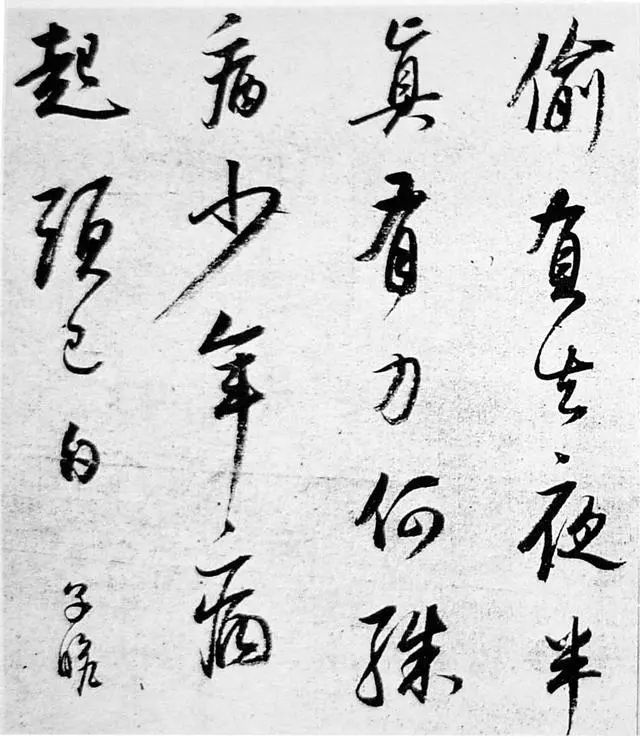 偷負去夜半
眞有力何殊
病少年病
起頭已白
子瞻